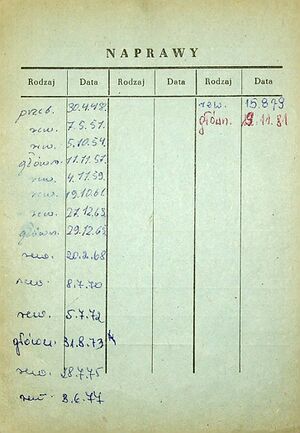 NAPRAWY
Rodzaj Data Rodzaj Data Rodzaj Data
przeb. 30.4.48.
rew. 7.5.51.
rew. 5.10.54.
główn. 11.11.57.
rew. 4.11.59.
rew. 19.10.61
rew. 27.12.63.
główn. 29.12.65.
rew. 20.2.68
rew. 8.7.70
rew. 5.7.72
główn. 31.8.73
rew. 28.7.75
rew. 8.6.77
rew. 15.8.79
główn. 11.81